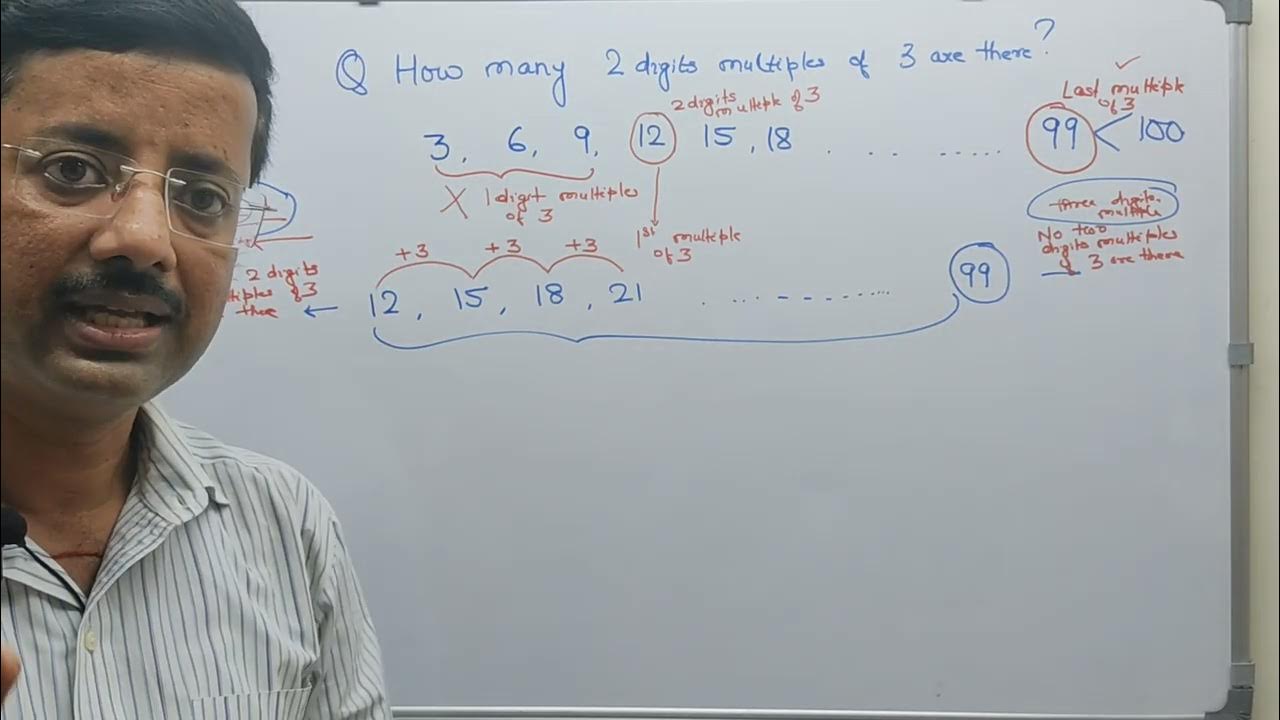 Q How many 2 digits multiples of 3 are there?
Last multiple of 3
2 digits multiple of 3
3, 6, 9, 12 15, 18 . . . . . . . . 99 < 100
X 1 digit multiples of 3
1st multiple of 3
three digits multiple
No two digits multiples of 3 are there
+3 +3 +3
2 digits
of 3
←
12, 15, 18, 21 . . . . - - - . . . . . . 99